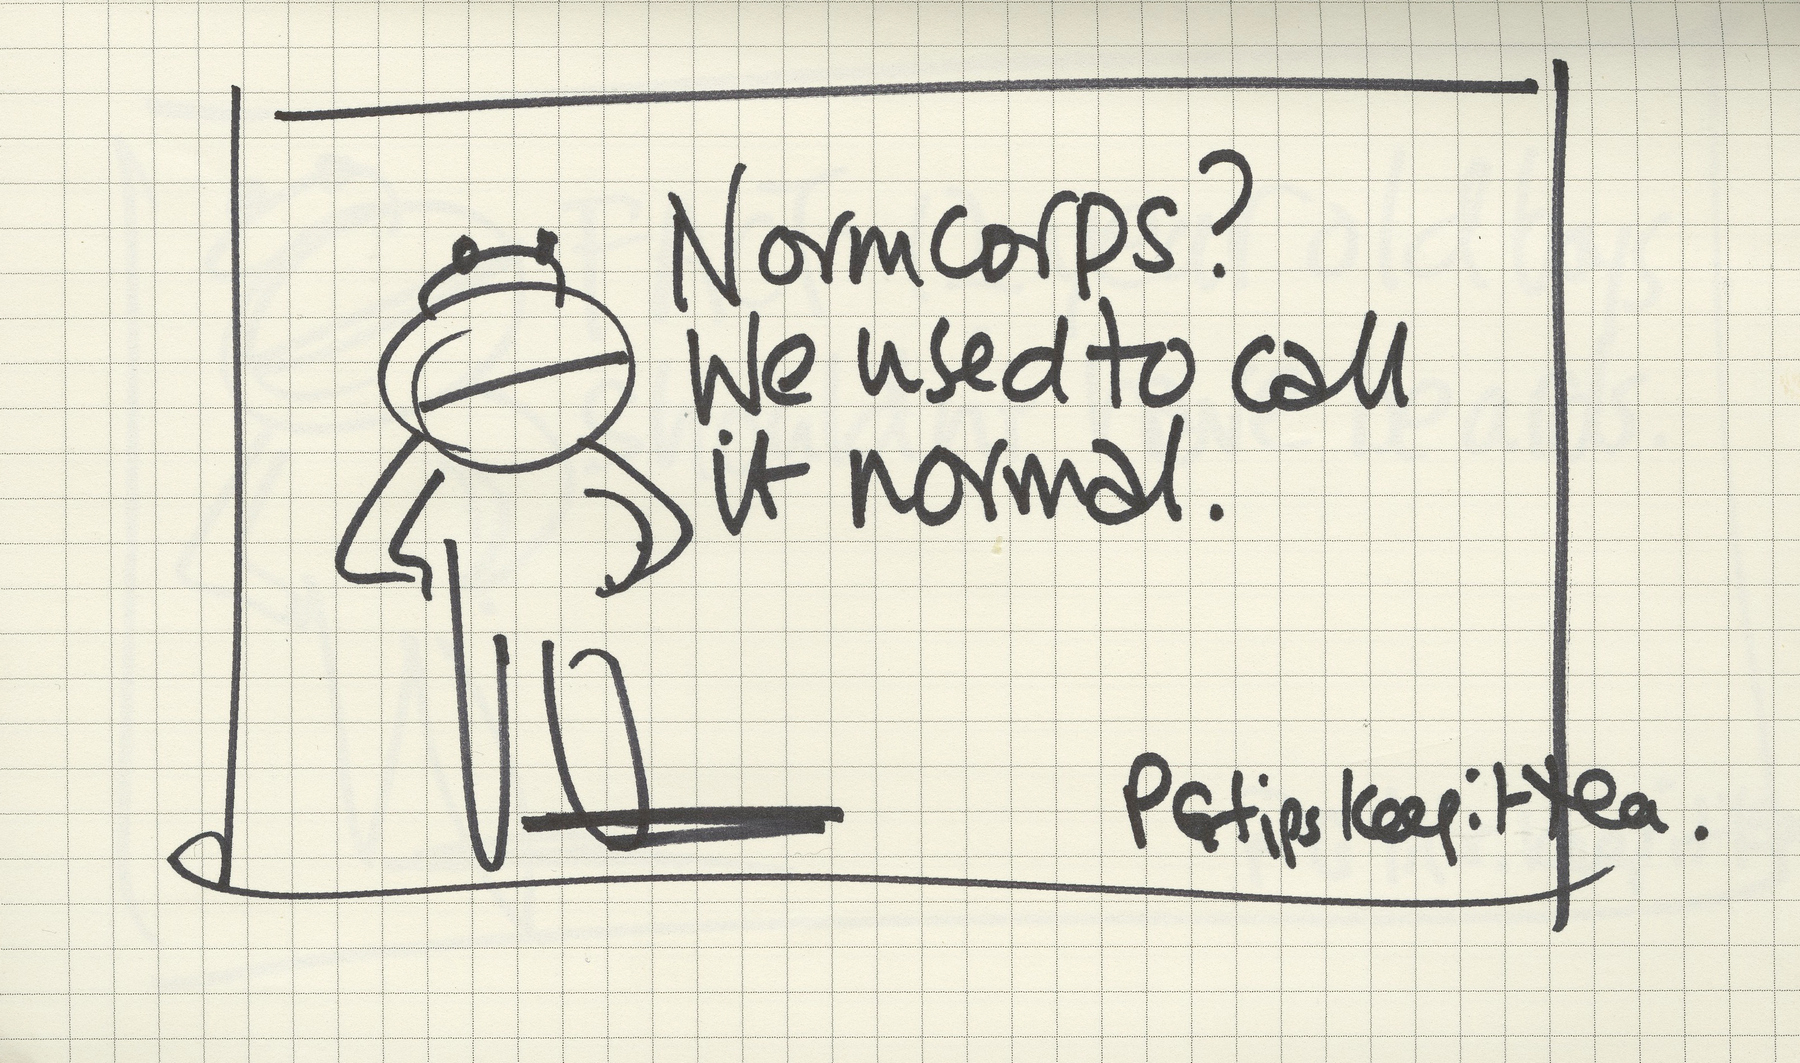 Normcorps?
We used to call
it normal.
PG tips keep it tea.